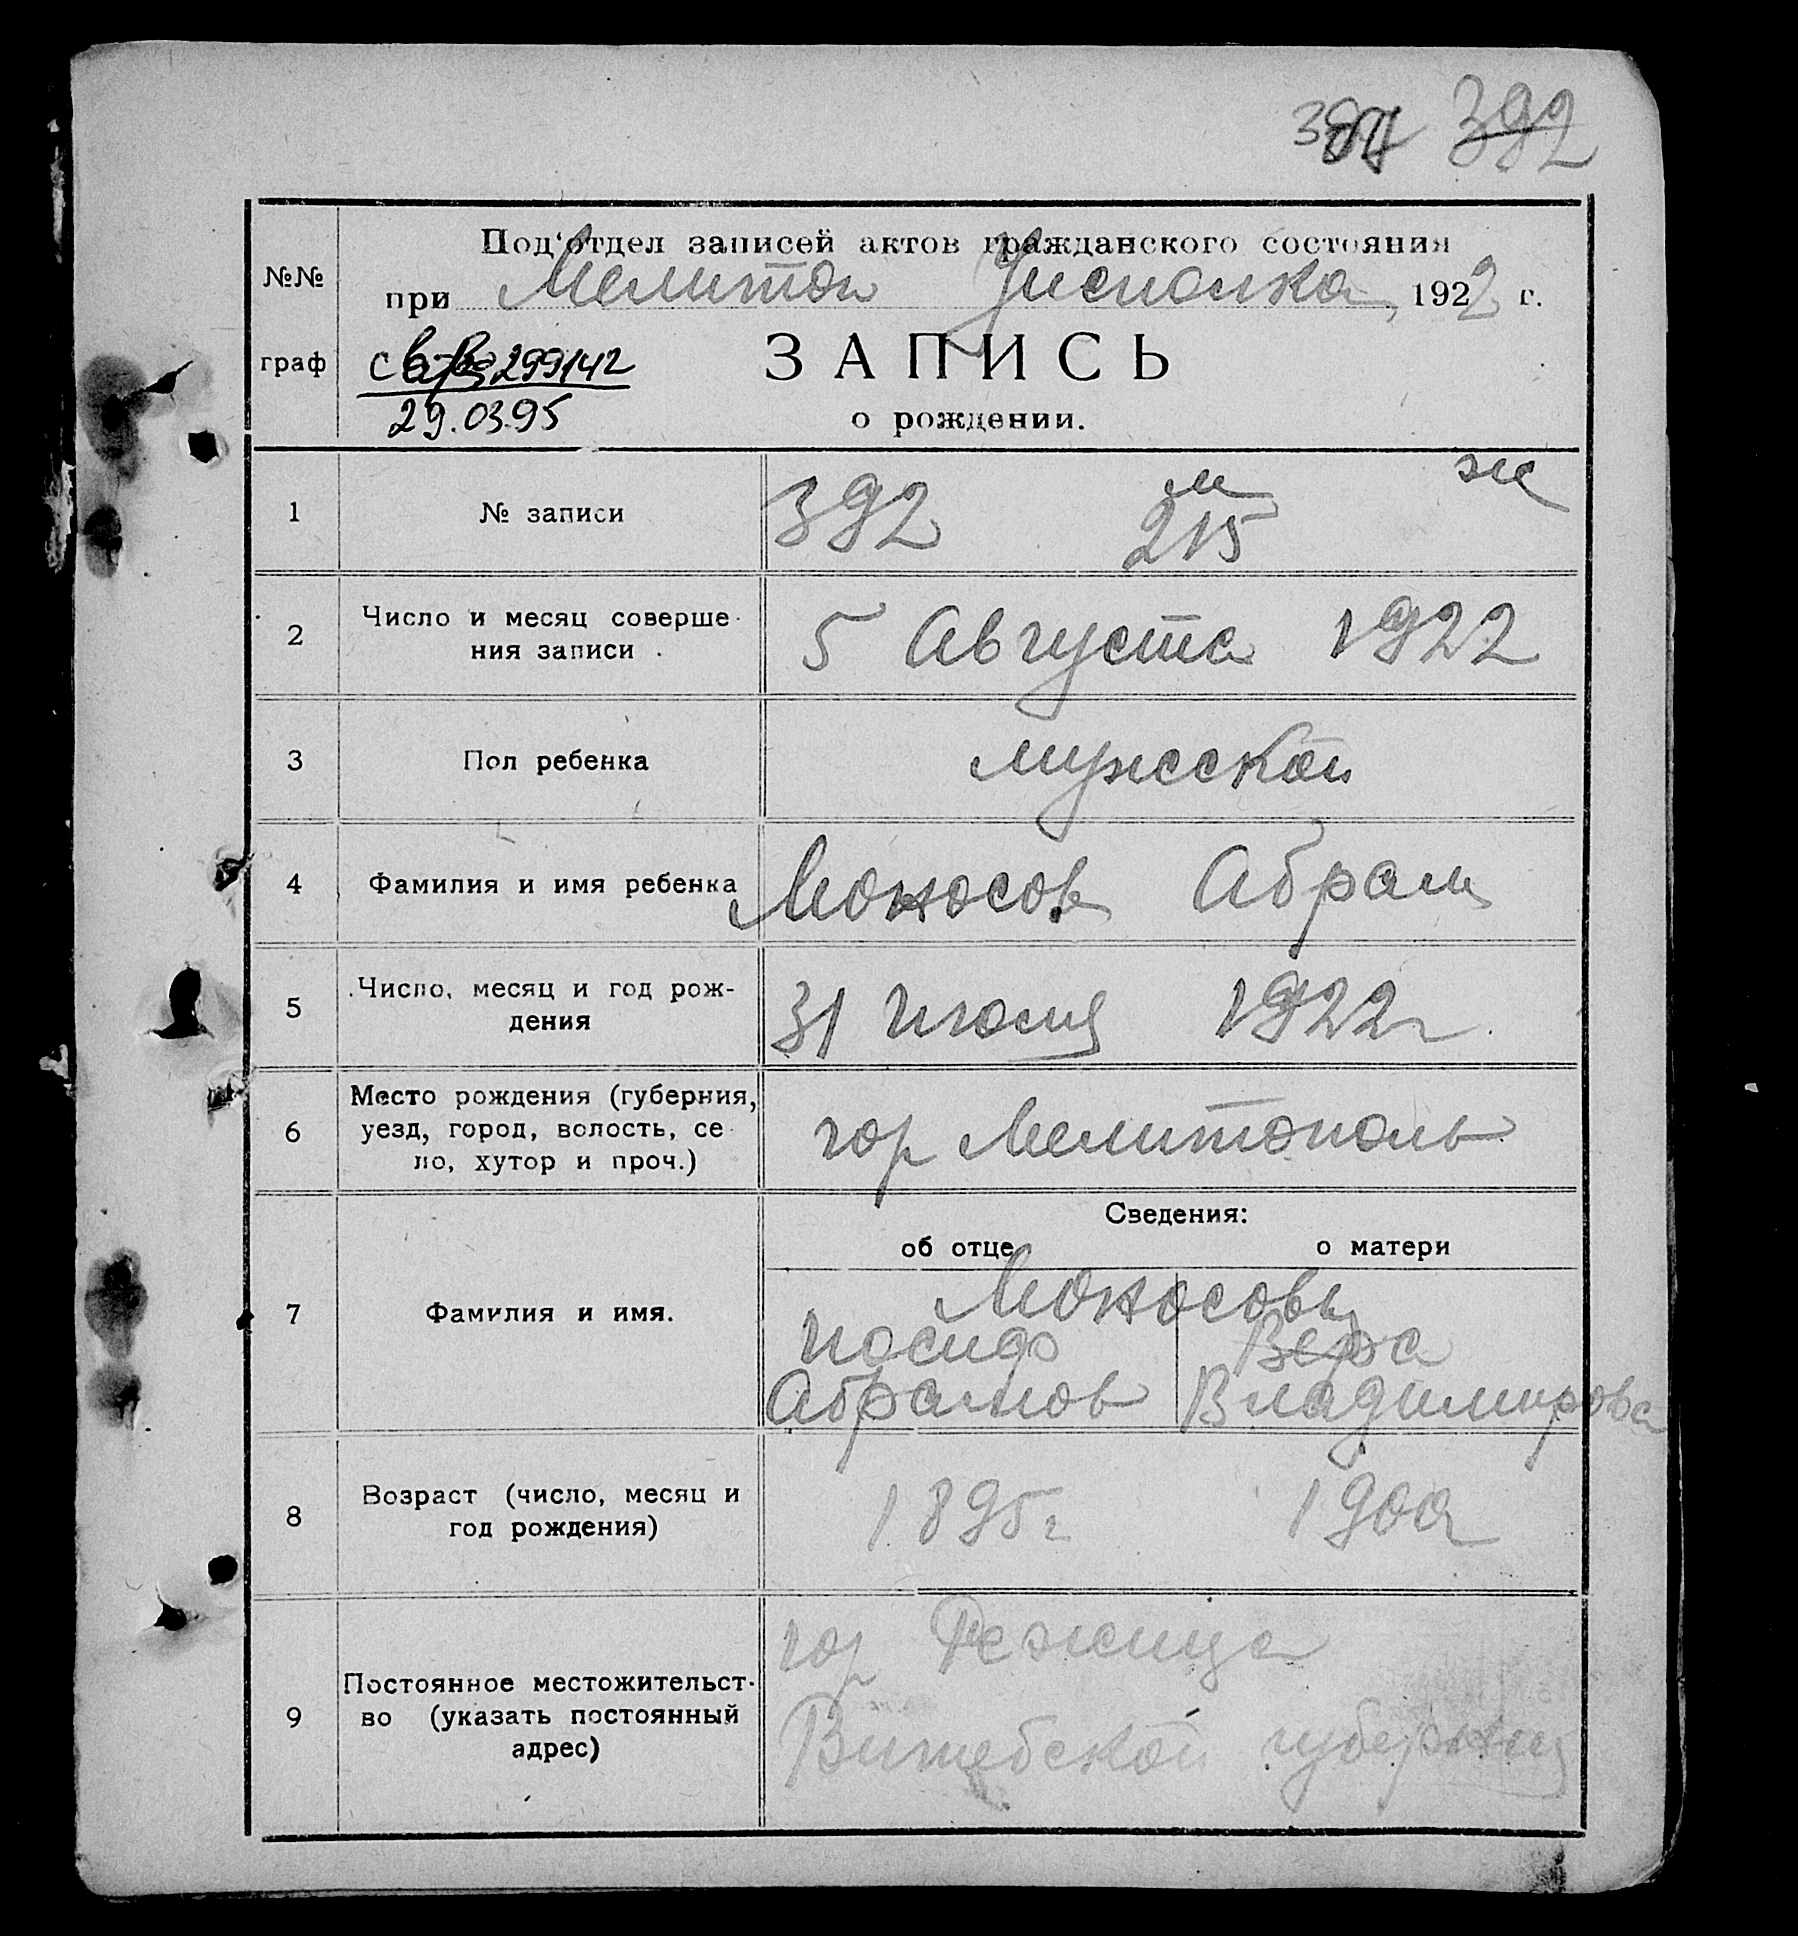 392
Под'отдел записей актов гражданского состояния
№№
при Мелитоп Уисполкома, 1922 г.
граф
299142
29.03.95
ЗАПИСЬ
о рождении.
м ж
1 № записи 392 215
2 Число и месяц соверше-
ния записи
5 Августа 1922
3 Пол ребенка мужской
4 Фамилия и имя ребенка Моносов Абрам
5 Число, месяц и год рож-
дения
31 Июля 1922 г
6 Место рождения (губерния,
уезд, город, волость, се-
ло, хутор и проч.)
гор Мелитополь
Сведения:
об отце о матери
7 Фамилия и имя.
Моносовы
Иосиф Вера
Абрамов Владимирова
8 Возраст (число, месяц и
год рождения)
1895 г 1900
9 Постоянное местожительст-
во (указать постоянный
адрес)
гор Режица
Витебской губернии